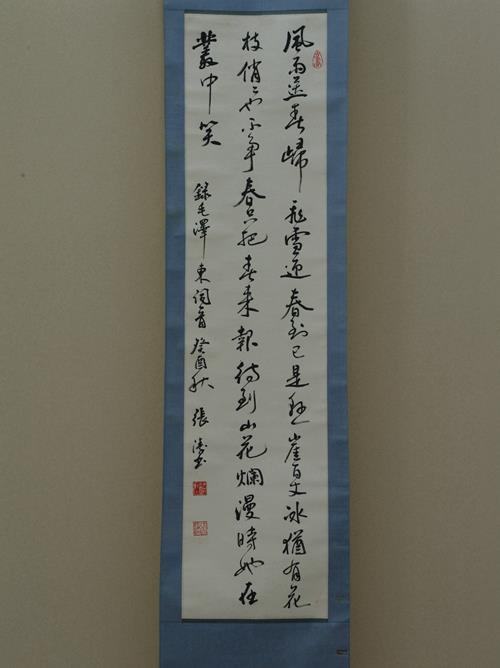 風雨送春歸飛雪迎春到已是懸崖百丈冰猶有花
枝俏〻也不爭春只把春来報待到山花爛漫時她在
叢中笑 録毛澤東詞一首癸酉秋張